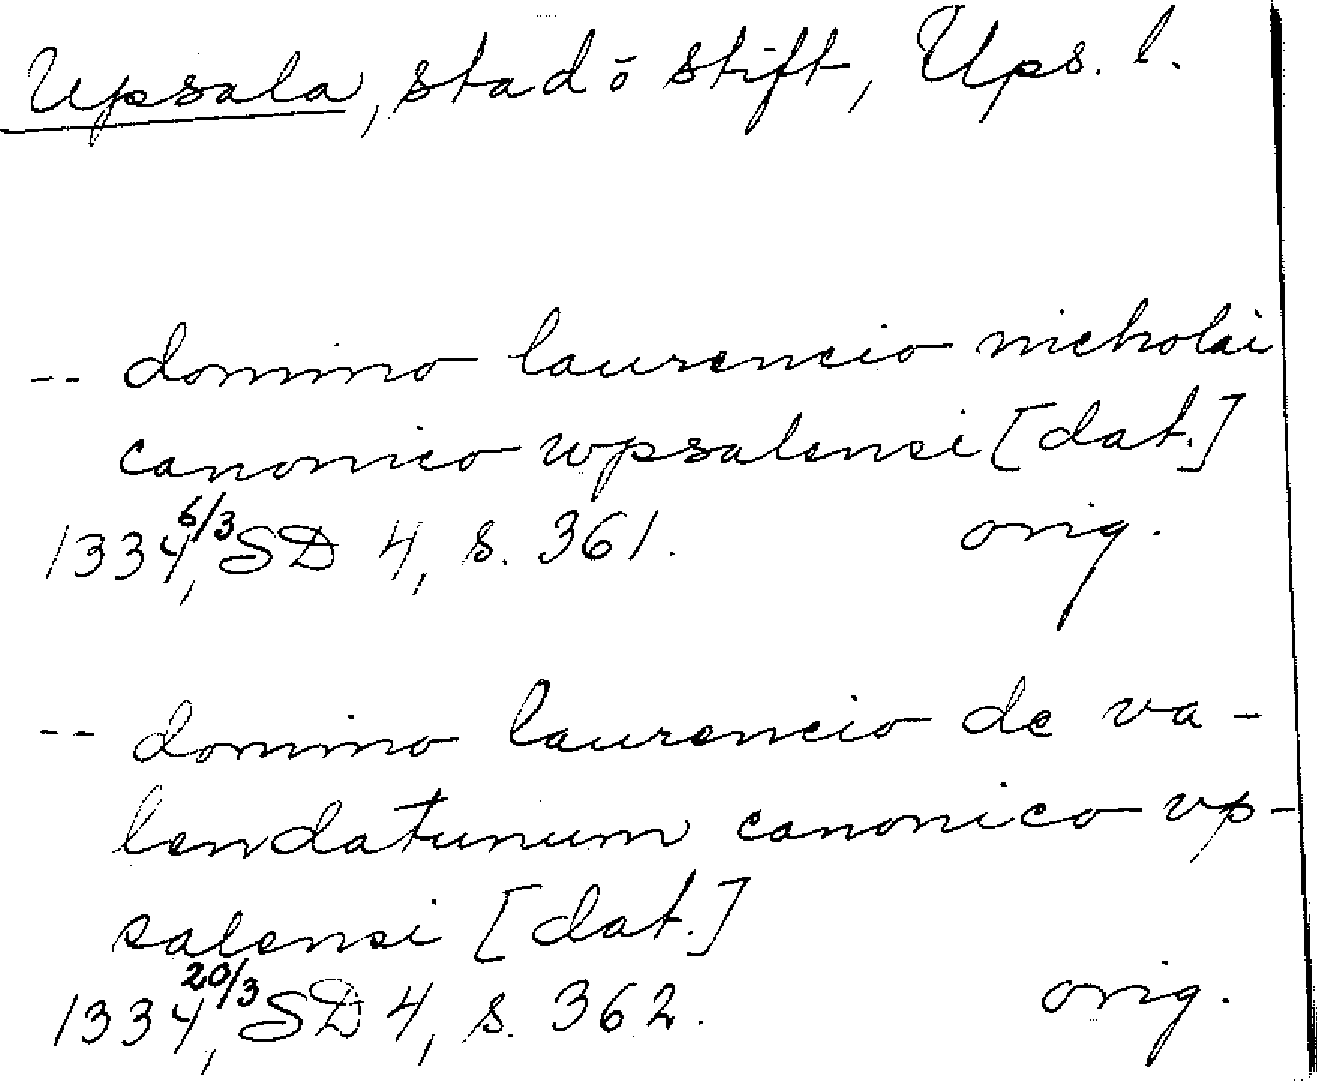 Upsala, stad o stift, Ups. l.
-- domino laurencio nicholai
canonico wpsalensi [dat.]
1334 6/3, SD 4, s. 361. orig.
-- domino laurencio de va-
lendatunum canonico vp-
salensi [dat.]
1334 20/3, SD 4, s. 362. orig.